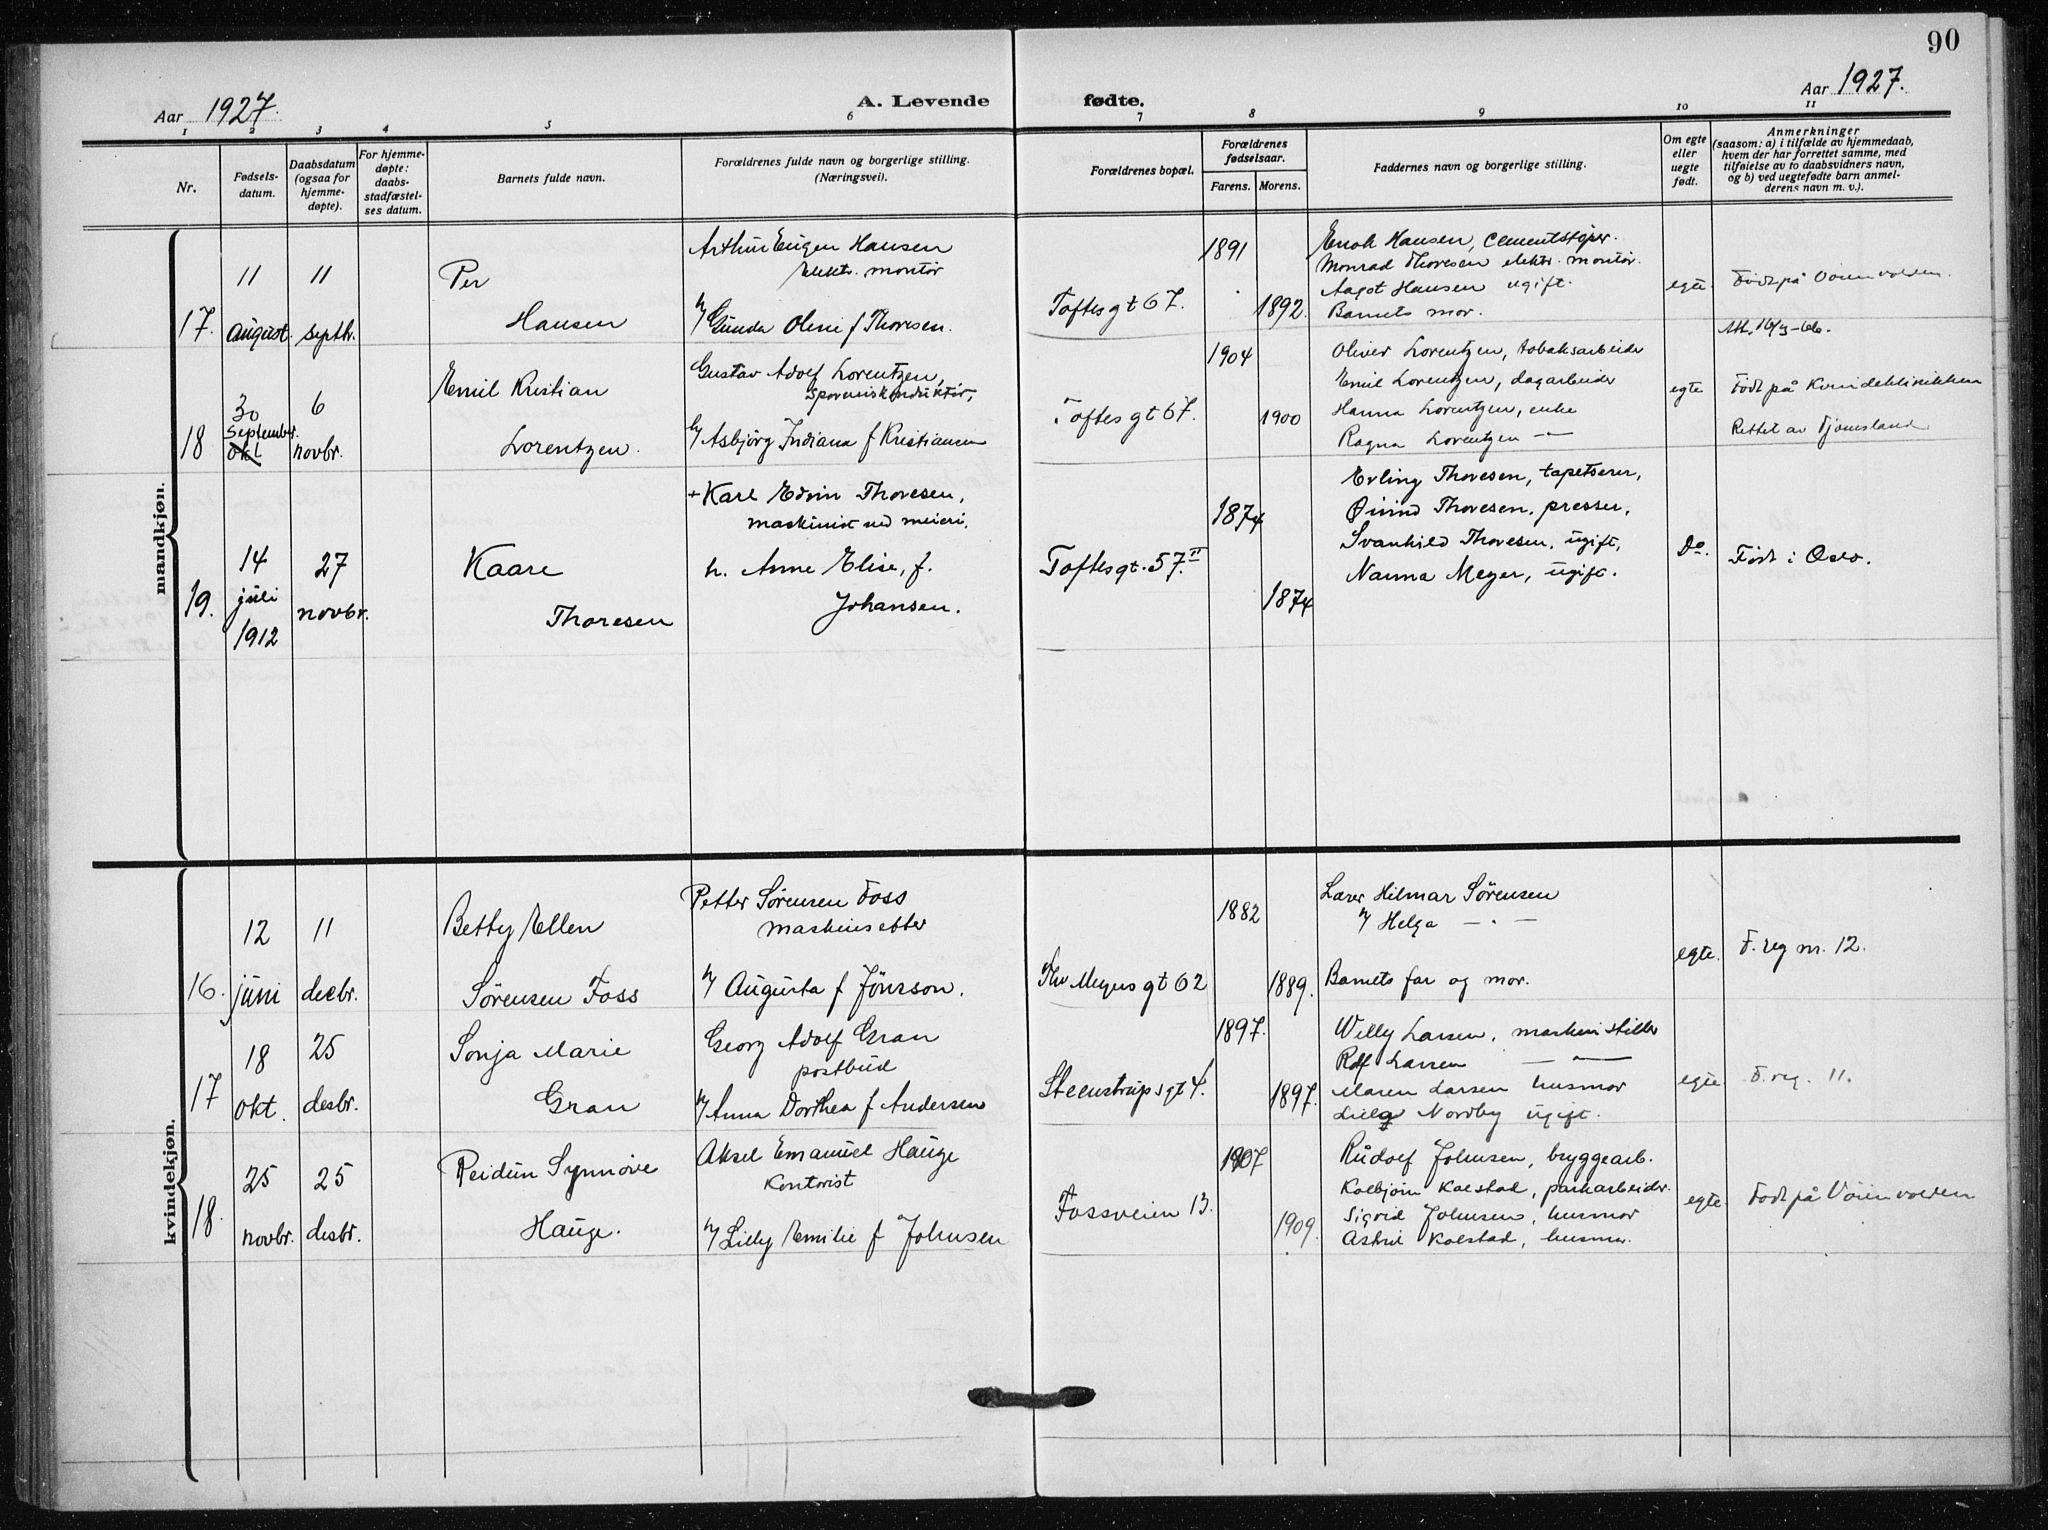 90
Aar 1927.
A. Levende
fødte.
Aar 1927.
1 2 3 4 5 6 7 8 9 10 11
Nr.
Fødsels-
datum.
Daabsdatum
(ogsaa for
hjemme-
døpte).
For hjemme-
døpte:
daabs-
stadfæstel-
ses datum.
Barnets fulde navn.
Forældrenes fulde navn og borgerlige stilling.
(Næringsvei).
Forældrenes bopæl.
Forældrenes
fødselsaar.
Farens. Morens.
Faddernes navn og borgerlige stilling.
Om egte
eller
uegte
født.
Anmerkninger
(saasom: a) i tilfælde av hjemmedaab,
hvem der har forrettet samme, med
tilføielse av to daabsvidners navn,
og b) ved uegtefødte barn anmel-
derens navn m. v.).
mandkjøn.
17.
11
august.
11
septbr.
Per
Hansen
Arthur Eugen Hansen
elektr. montør
h/ Gunda Oline f Thoresen.
Toftesgt 67.
1891
1892.
Enok Hansen, cementstøper.
Monrad Thoresen elektr. montør.
Aagot Hansen ugift.
Barnets mor.
egte
Født på Vøienvolden.
Att. 16/3-66.
18
30
September.
okt
6
novbr.
Emil Kristian
Lorentzen.
Gustav Adolf Lorentzen,
sporveiskonduktør,
h/ Asbjörg Indiana f Kristiansen
Toftesgt 67.
1904
1900
Oliver Lorentzen, tobaksarbeider
Emil Lorentzen, dagarbeider
Hanna Lorentzen, enke
Ragna Lorentzen — " —
egte
Født på Kvindeklinikken
Rettet av Tjomsland.
19.
14
juli
1912
27
novbr.
Kaare
Thoresen
+ Karl Edvin Thoresen,
maskinist ved meieri.
h. Anne Elise, f.
Johansen.
Toftesgt. 57.II
1874
1874
Erling Thoresen, tapetserer,
Øivind Thoresen, presser,
Svanhild Thoresen, ugift,
Nanna Meyer, ugift.
Do.
Født i Oslo.
kvindekjøn.
16.
12
juni
11
decbr.
Betty Ellen
Sørensen Foss
Petter Sørensen Foss
maskinsetter
h/ Augusta f Jönsson.
Thv Meyersgt 62
1882
1889.
Lærer Hilmar Sørensen
h/ Helga — " —
Barnets far og mor.
egte.
F. reg nr. 12.
17
18
okt.
25
desbr.
Sonja Marie
Gran
Georg Adolf Gran
postbud
h/ Anna Dorthea f Andersen
Steenstrupsgt 4.
1897.
1897.
Willy Larsen, maskinstiller
Rolf Larsen — " —
Maren Larsen husmor
Nordby ugift.
egte
F. reg. 11.
18.
25
novbr.
25
desbr.
Reidun Synnøve
Hauge.
Aksel Emanuel Hauge
kontorist
h/ Lilly Emilie f Johnsen
Fossveien 13.
1907
1909.
Rudolf Johnsen, bryggearb.
Kolbjørn Kolstad, parkarbeider.
Sigrid Johnsen, husmor
Astrid Kolstad, husmor.
egte
Født på Vøienvolden